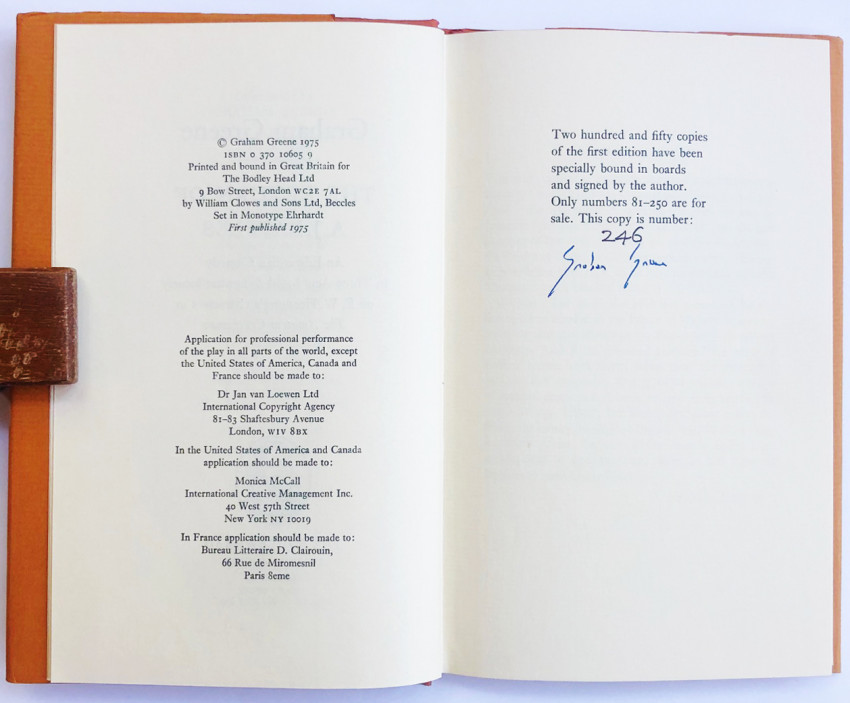 © Graham Greene 1975
ISBN 0 370 10605 9
Printed and bound in Great Britain for
The Bodley Head Ltd
9 Bow Street, London WC2E 7AL
by William Clowes and Sons Ltd, Beccles
Set in Monotype Ehrhardt
First published 1975
Application for professional performance
of the play in all parts of the world, except
the United States of America, Canada and
France should be made to:
Dr Jan van Loewen Ltd
International Copyright Agency
81–83 Shaftesbury Avenue
London, W1V 8BX
In the United States of America and Canada
application should be made to:
Monica McCall
International Creative Management Inc.
40 West 57th Street
New York NY 10019
In France application should be made to:
Bureau Litteraire D. Clairouin,
66 Rue de Miromesnil
Paris 8eme
Two hundred and fifty copies
of the first edition have been
specially bound in boards
and signed by the author.
Only numbers 81–250 are for
sale. This copy is number:
246
Graham Greene